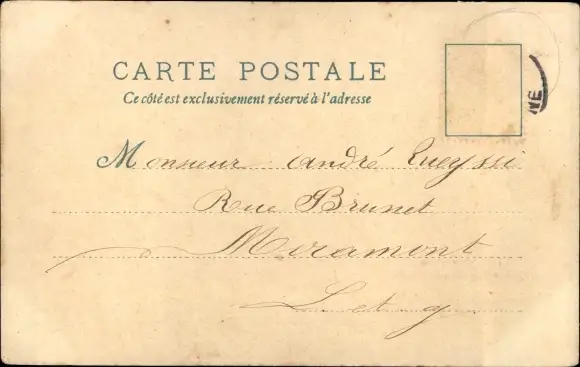 CARTE POSTALE
Ce côté est exclusivement réservé à l'adresse
NE
Monsieur André Queyssi
Rue Brunet
Miramont
L et g